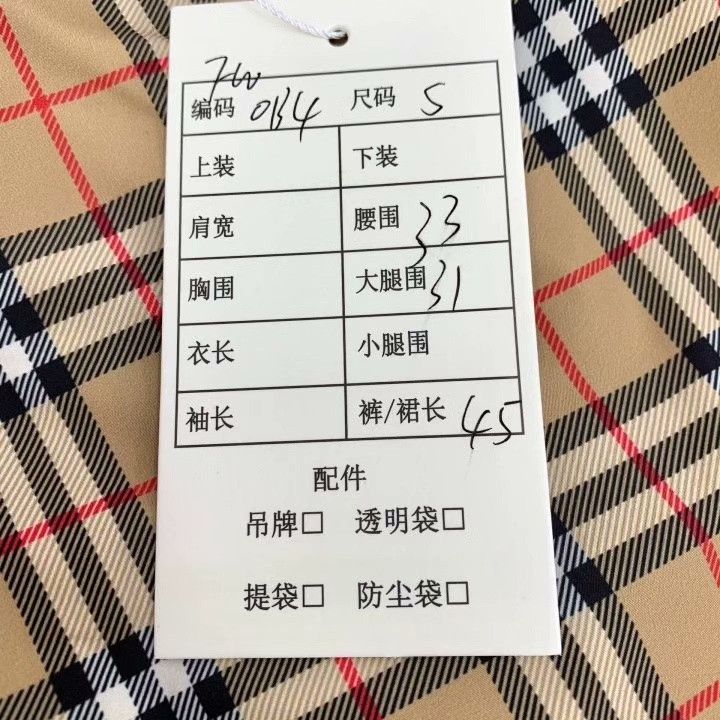 编码 0134 尺码 S
上装 下装
肩宽 腰围 33
胸围 大腿围 31
衣长 小腿围
袖长 裤/裙长 45
配件
吊牌□ 透明袋□
提袋□ 防尘袋□